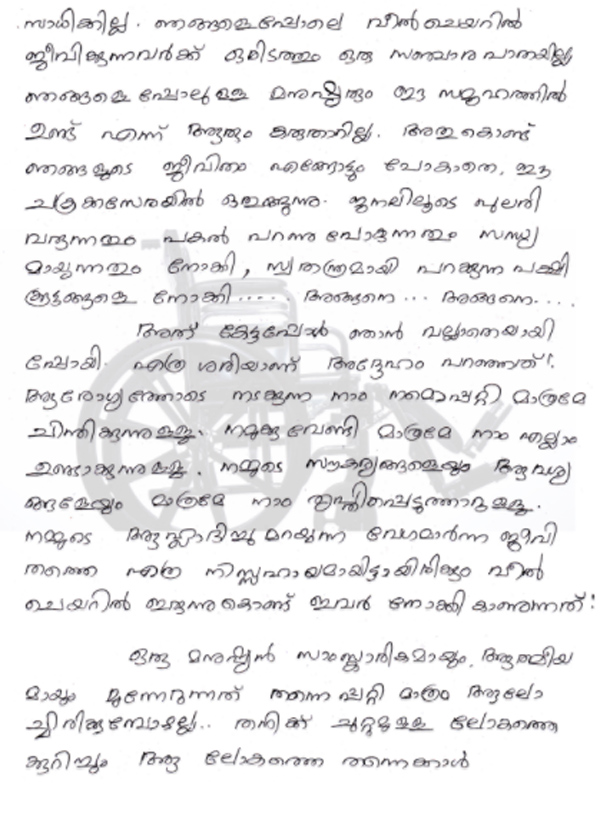 സാധിക്കില്ല. ഞങ്ങളെപ്പോലെ വീൽചെയറിൽ
ജീവിക്കുന്നവർക്ക് ഒരിടത്തും ഒരു സഞ്ചാര പാതയില്ല
ഞങ്ങളെ പ്പോലുള്ള മനുഷ്യരും ഈ സമൂഹത്തിൽ
ഉണ്ട് എന്ന് ആരും കരുതാറില്ല. അതുകൊണ്ട്
ഞങ്ങളുടെ ജീവിതം എങ്ങോട്ടും പോകാതെ, ഈ
ചക്രക്കസേരയിൽ ഒതുങ്ങുന്നു. ജനലിലൂടെ പുലരി
വരുന്നതും പകൽ പറന്നു പോകുന്നതും സന്ധ്യ
മായുന്നതും നോക്കി, സ്വതന്ത്രമായി പറക്കുന്ന പക്ഷി
ക്കൂട്ടങ്ങളെ നോക്കി..... അങ്ങനെ... അങ്ങനെ....
അത് കേട്ടപ്പോൾ ഞാൻ വല്ലാതെയായി
പ്പോയി. എത്ര ശരിയാണ് അദ്ദേഹം പറഞ്ഞത്!
ആരോഗ്യത്തോടെ നടക്കുന്ന നാം നമ്മെപ്പറ്റി മാത്രമേ
ചിന്തിക്കുന്നുള്ളൂ. നമുക്കുവേണ്ടി മാത്രമേ നാം എല്ലാം
ഉണ്ടാക്കുന്നുള്ളൂ. നമ്മുടെ സൗകര്യങ്ങളെയും ആവശ്യ
ങ്ങളേയും മാത്രമേ നാം തൃപ്തിപ്പെടുത്താറുള്ളൂ.
നമ്മുടെ ആഹ്ലാദിച്ചു മറയുന്ന വേഗമാർന്ന ജീവി
തത്തെ എത്ര നിസ്സഹായമായിട്ടായിരിക്കും വീൽ
ചെയറിൽ ഇരുന്നുകൊണ്ട് ഇവർ നോക്കി കാണുന്നത്!
ഒരു മനുഷ്യൻ സാംസ്കാരികമായും, ആത്മീയ
മായും മുന്നേറുന്നത് തന്നെ പ്പറ്റി മാത്രം ആലോ
ച്ചിരിക്കുമ്പോഴല്ല.. തനിക്ക് ചുറ്റുമുള്ള ലോകത്തെ
ക്കുറിച്ചും ആ ലോകത്തെ തന്നെക്കാൾ